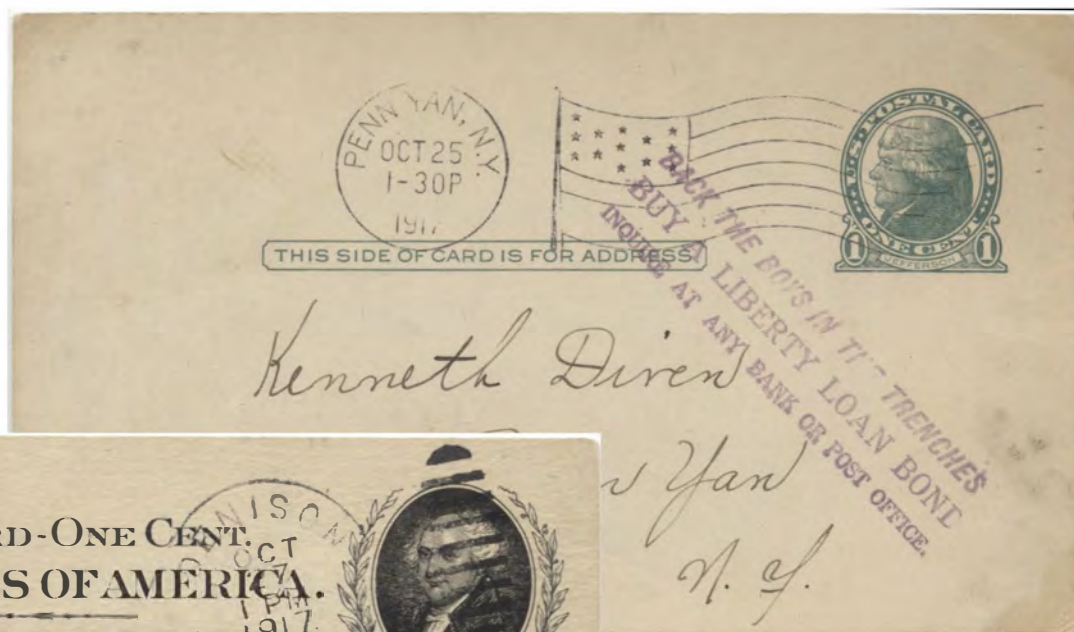 PENN YAN, N.Y.
OCT 25
1-30P
1917
U.S. POSTAL CARD
ONE CENT
1 JEFFERSON 1
THIS SIDE OF CARD IS FOR ADDRESS
BACK THE BOYS IN THE TRENCHES
BUY A LIBERTY LOAN BOND
INQUIRE AT ANY BANK OR POST OFFICE.
Kenneth Diven
Yan
N. Y.
RD-ONE CENT.
S OF AMERICA.
OCT
1 PM
1917